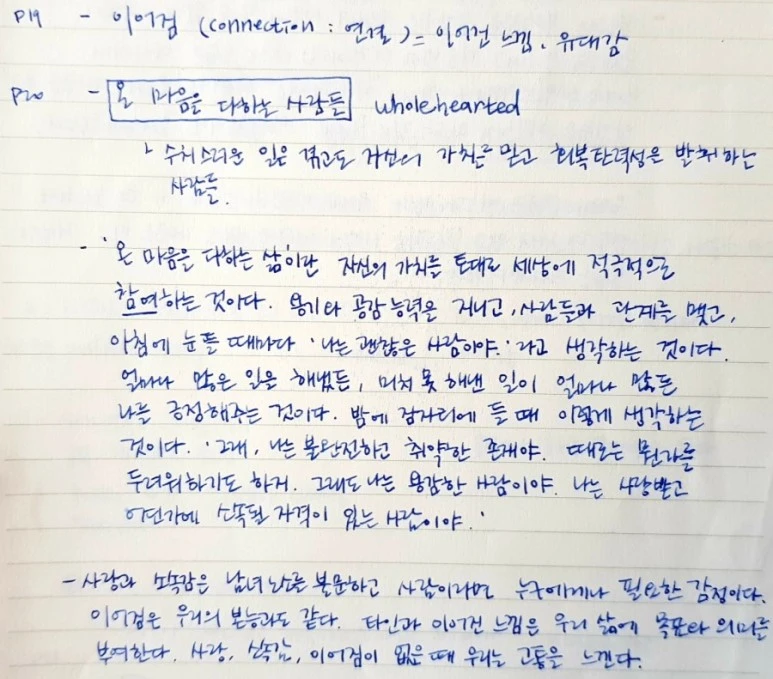 P19 - 이어짐 (connection : 연결) = 이어진 느낌. 유대감
P20 - 온 마음을 다하는 사람들 wholehearted
↳ 수치스러운 일을 겪고도 자신의 가치를 믿고 회복탄력성을 발휘하는
사람들.
- '온 마음을 다하는 삶'이란 자신의 가치를 토대로 세상에 적극적으로
참여하는 것이다. 용기와 공감 능력을 지니고, 사람들과 관계를 맺고,
아침에 눈뜰 때마다 '나는 괜찮은 사람이야.'라고 생각하는 것이다.
얼마나 많은 일을 해냈든, 미처 못 해낸 일이 얼마나 많든
나를 긍정해주는 것이다. 밤에 잠자리에 들 때 이렇게 생각하는
것이다. '그래, 나는 불완전하고 취약한 존재야. 때로는 뭔가를
두려워하기도 하지. 그래도 나는 용감한 사람이야. 나는 사랑받고
어딘가에 소속될 자격이 있는 사람이야.'
- 사랑과 소속감은 남녀노소를 불문하고 사람이라면 누구에게나 필요한 감정이다.
이어짐은 우리의 본능과도 같다. 타인과 이어진 느낌은 우리 삶에 목표와 의미를
부여한다. 사랑, 소속감, 이어짐이 없을 때 우리는 고통을 느낀다.